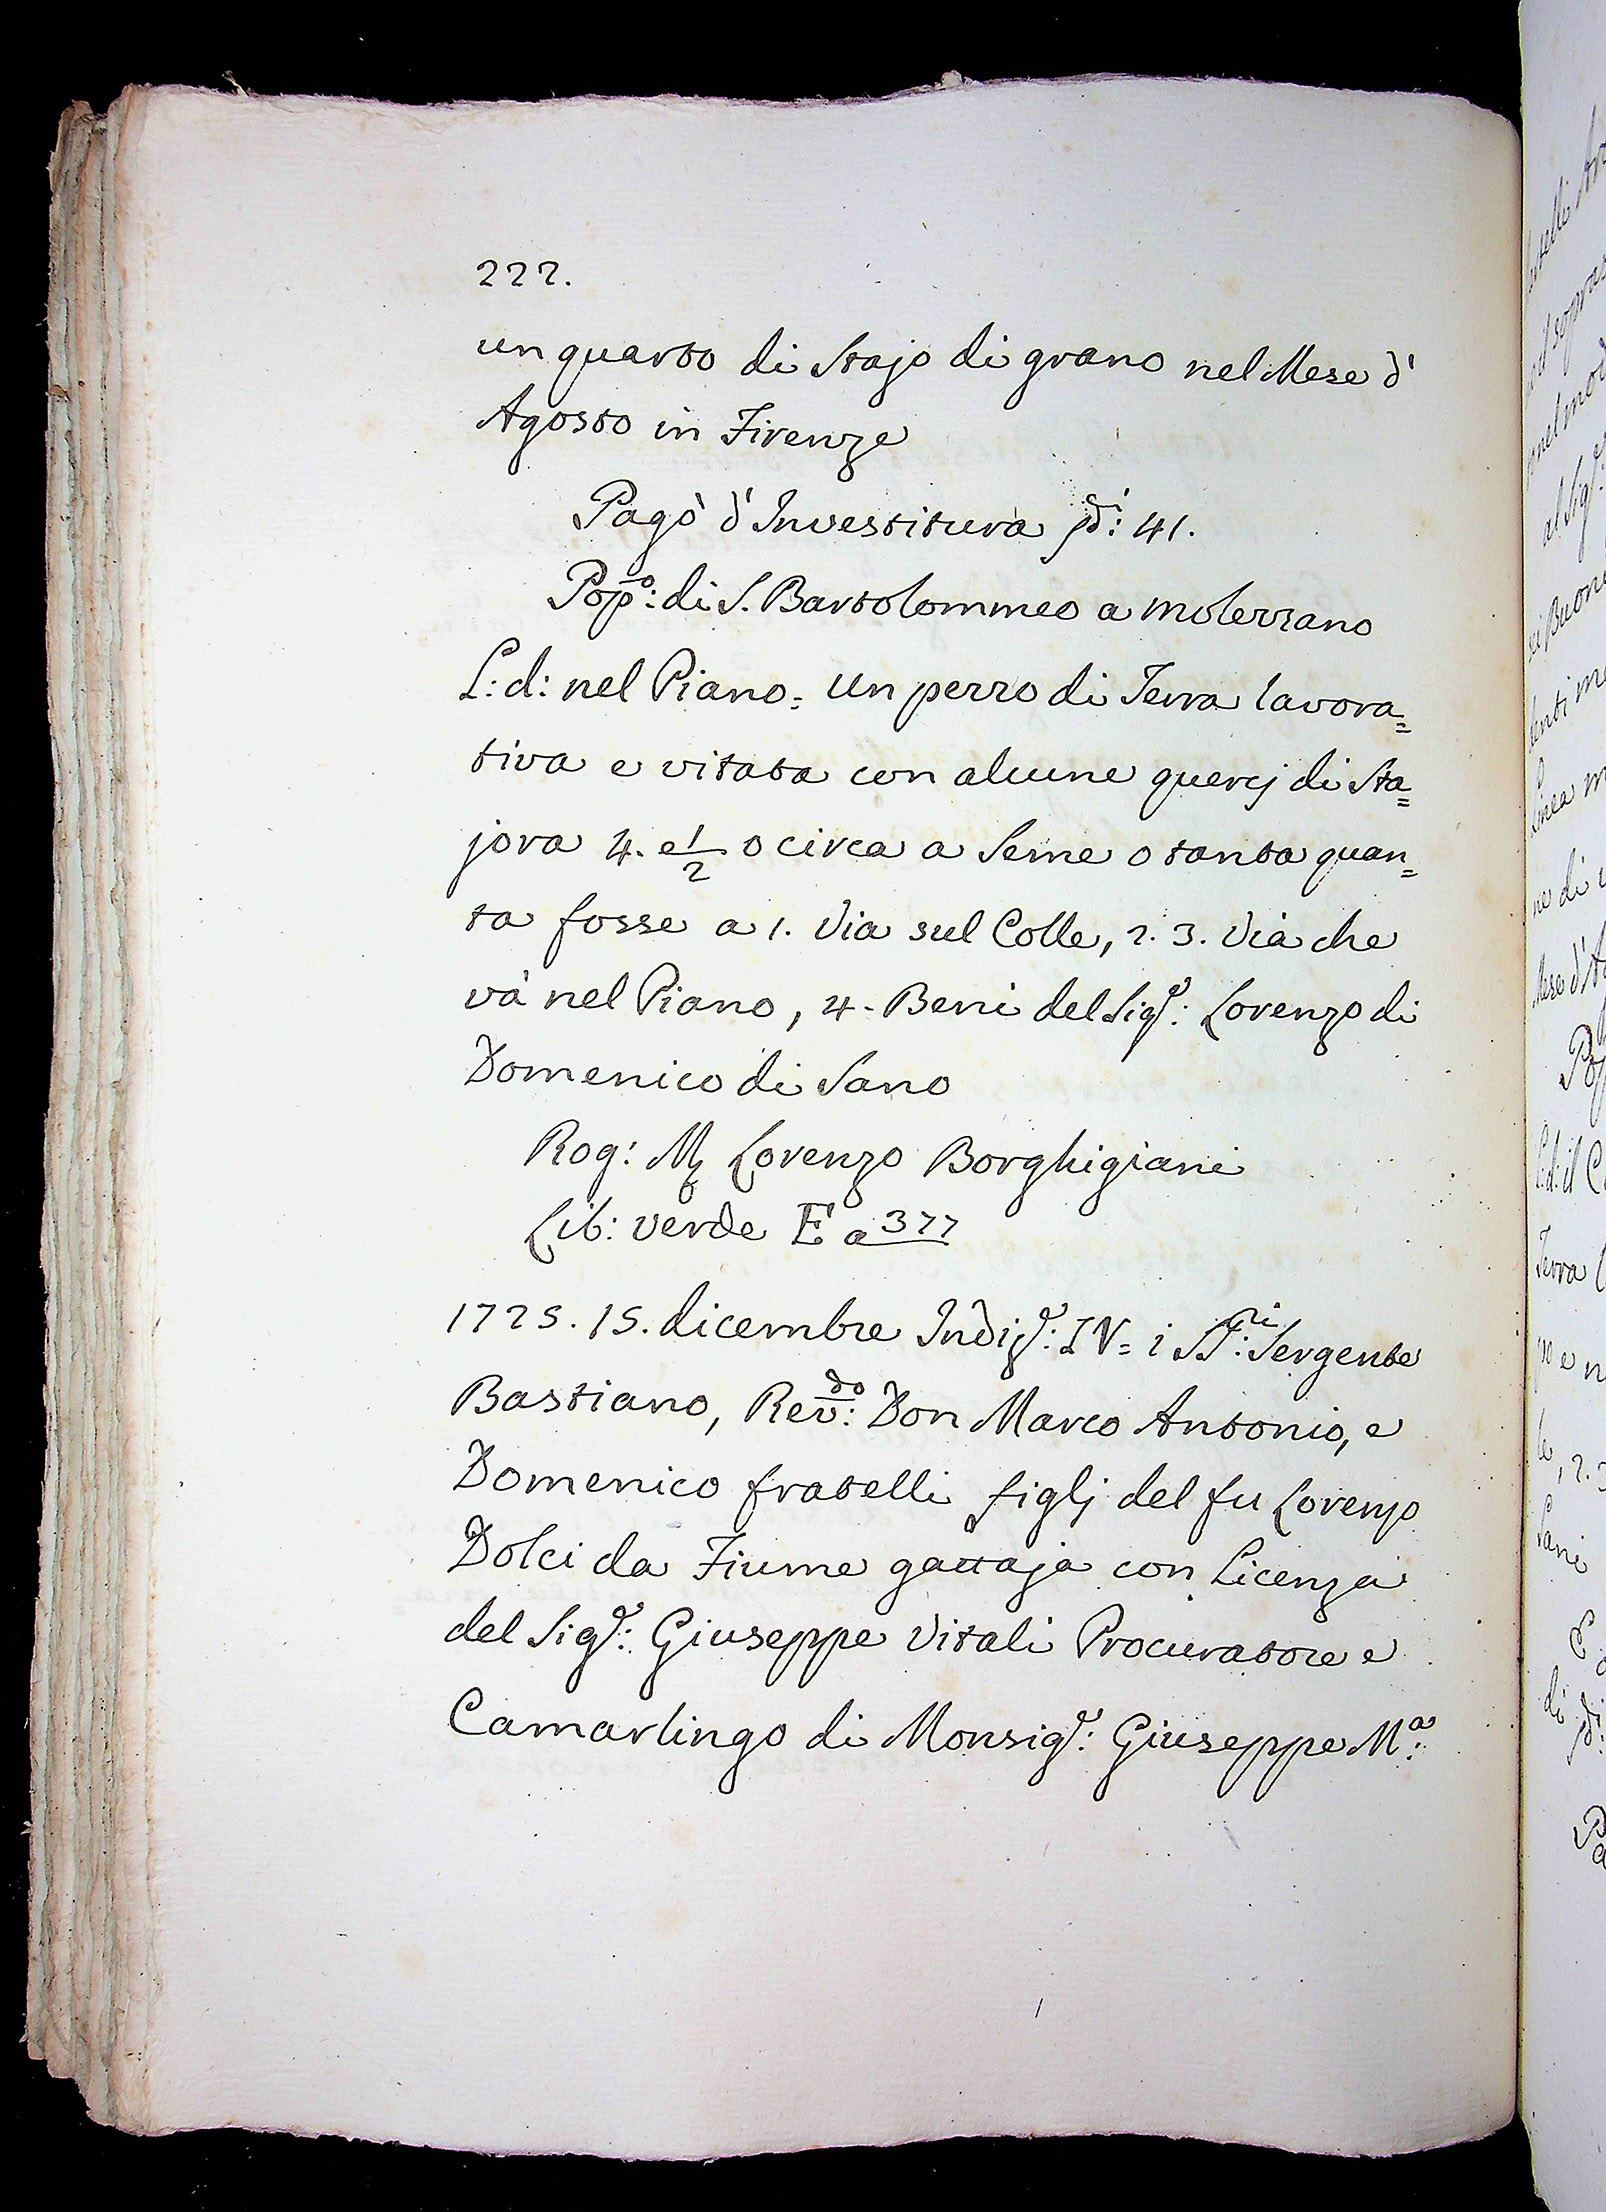 222.
un quarto di Stajo di grano nel Mese d'
Agosto in Firenze
Pagò d'Investitura sdi: 41.
Popo: di S. Bartolommeo a Molezzano
L: d: nel Piano= Un pezzo di Terra lavora=
tiva e vitata con alcune quercj di Sta=
jora 4. e 1/2 o circa a Seme o tanta quan=
ta fosse a 1. Via sul Colle, 2. 3. Via che
và nel Piano, 4. Beni del Sigr: Lorenzo di
Domenico di Sano
Rog: M Lorenzo Borghigiani
Lib: verde E a 377
1725. 15. dicembre Indize: IV= i SSri: Sergente
Bastiano, Revdo: Don Marco Antonio, e
Domenico fratelli figlj del fu Lorenzo
Dolci da Fiume gattaja con Licenza
del Sigr: Giuseppe Vitali Procuratore e
Camarlingo di Monsigr: Giuseppe Ma: